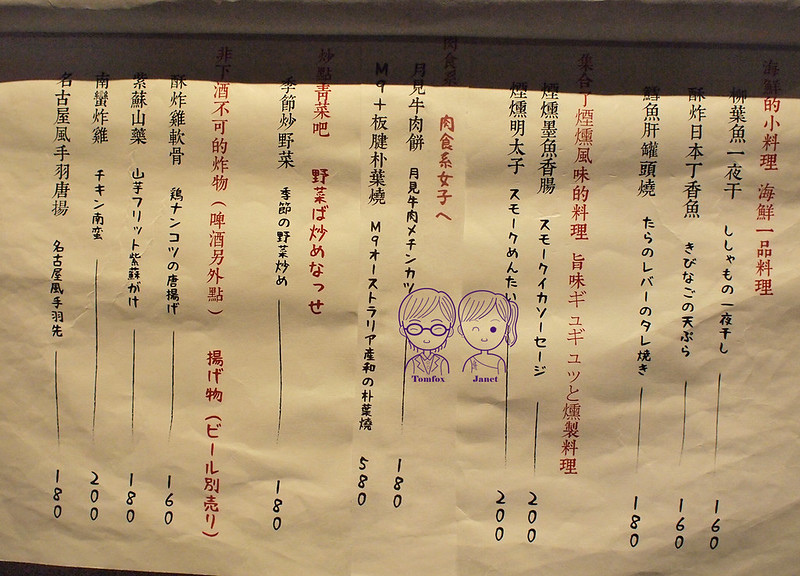 海鮮的小料理 海鮮一品料理
柳葉魚一夜干 ししゃもの一夜干し 160
酥炸日本丁香魚 きびなごの天ぷら 160
鱈魚肝罐頭燒 たらのレバーのタレ焼き 180
集合了煙燻風味的料理 旨味ギュギュツと燻製料理
煙燻墨魚香腸 スモークイカソーセージ 200
煙燻明太子 スモークめんたい 200
肉食系 肉食系女子へ
月見牛肉餅 月見牛肉メチンカツ 180
M9+板腱朴葉燒 M9オーストラリア産和の朴葉燒 580
炒點青菜吧 野菜ば炒めなっせ
季節炒野菜 季節の野菜炒め 180
非下酒不可的炸物(啤酒另外點) 揚げ物(ビール別売り)
酥炸雞軟骨 鶏ナンコツの唐揚げ 160
紫蘇山藥 山芋フリット紫蘇がけ 180
南蠻炸雞 チキン南蛮 200
名古屋風手羽唐揚 名古屋風手羽先 180
Tomfox
Janet